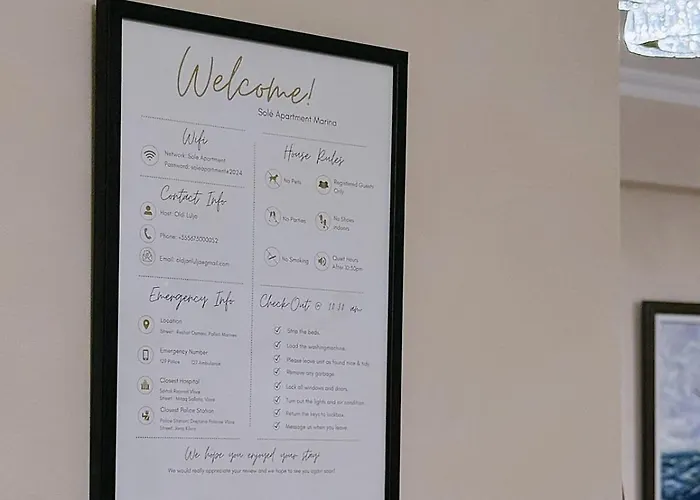 Welcome!
Solé Apartment Marina
Wifi
Network: Sole Apartment
Password: soleapartments2024
Contact Info
Host: Oldi Lulja
Phone:
Email:
Emergency Info
Location
Street:
Emergency Number
129 Police 127 Ambulance
Closest Hospital
Spitali Rajonal Vlore
Street:
Closest Police Station
Police Station:
Street:
House Rules
No Pets
Registered Guests
Only
No Parties
No Shoes
Indoors
No Smoking
Quiet Hours
After 10:30pm
Check Out @ 10:30 am
Strip the beds.
Load the washing machine.
Please leave unit as found nice & tidy.
Remove any garbage.
Lock all windows and doors.
Turn out the lights and air condition.
Return the keys to lockbox.
Message us when you leave.
We hope you enjoyed your stay!
We would really appreciate your review and we hope to see you again soon!